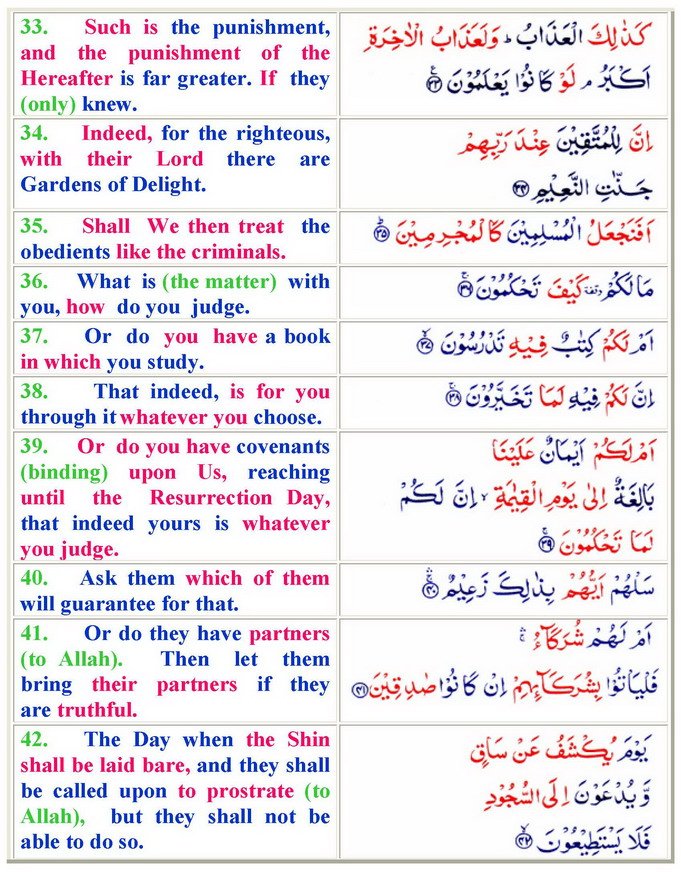 33. Such is the punishment,
and the punishment of the
Hereafter is far greater. If they
(only) knew.
كَذٰلِكَ الْعَذَابُ ؕ وَلَعَذَابُ الْاٰخِرَةِ
اَكْبَرُ ۘ لَوْ كَانُوْا يَعْلَمُوْنَ ﴿۳۳﴾
34. Indeed, for the righteous,
with their Lord there are
Gardens of Delight.
اِنَّ لِلْمُتَّقِيْنَ عِنْدَ رَبِّهِمْ
جَنّٰتِ النَّعِيْمِ ﴿۳۴﴾
35. Shall We then treat the
obedients like the criminals.
اَفَنَجْعَلُ الْمُسْلِمِيْنَ كَالْمُجْرِمِيْنَ ﴿۳۵﴾
36. What is (the matter) with
you, how do you judge.
مَا لَكُمْ وقفة كَيْفَ تَحْكُمُوْنَ ﴿۳۶﴾
37. Or do you have a book
in which you study.
اَمْ لَكُمْ كِتٰبٌ فِيْهِ تَدْرُسُوْنَ ﴿۳۷﴾
38. That indeed, is for you
through it whatever you choose.
اِنَّ لَكُمْ فِيْهِ لَمَا تَخَيَّرُوْنَ ﴿۳۸﴾
39. Or do you have covenants
(binding) upon Us, reaching
until the Resurrection Day,
that indeed yours is whatever
you judge.
اَمْ لَكُمْ اَيْمَانٌ عَلَيْنَا
بَالِغَةٌ اِلٰى يَوْمِ الْقِيٰمَةِ ۙ اِنَّ لَكُمْ
لَمَا تَحْكُمُوْنَ ﴿۳۹﴾
40. Ask them which of them
will guarantee for that.
سَلْهُمْ اَيُّهُمْ بِذٰلِكَ زَعِيْمٌ ﴿۴۰﴾
41. Or do they have partners
(to Allah). Then let them
bring their partners if they
are truthful.
اَمْ لَهُمْ شُرَكَآءُ ۚ
فَلْيَاْتُوْا بِشُرَكَآئِهِمْ اِنْ كَانُوْا صٰدِقِيْنَ ﴿۴۱﴾
42. The Day when the Shin
shall be laid bare, and they shall
be called upon to prostrate (to
Allah), but they shall not be
able to do so.
يَوْمَ يُكْشَفُ عَنْ سَاقٍ
وَّيُدْعَوْنَ اِلَى السُّجُوْدِ
فَلَا يَسْتَطِيْعُوْنَ ﴿۴۲﴾